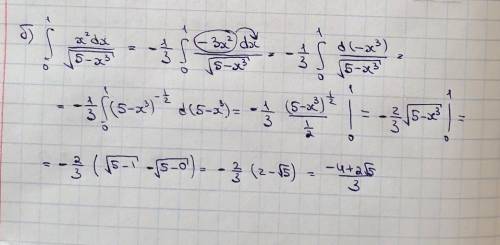 б) ∫₀¹ x²dx/√(5-x³) = -1/3 ∫₀¹ (-3x²)dx/√(5-x³) = -1/3 ∫₀¹ d(-x³)/√(5-x³) =
= -1/3 ∫₀¹ (5-x³)^(-1/2) d(5-x³) = -1/3 (5-x³)^(1/2)/(1/2) |₀¹ = -2/3 √(5-x³) |₀¹ =
= -2/3 (√(5-1) - √(5-0)) = -2/3 (2-√5) = (-4+2√5)/3